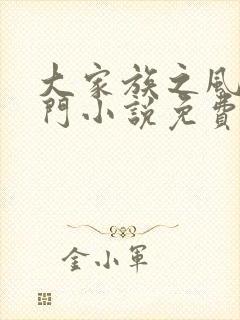 大家族之風
門小說免費
金小軍